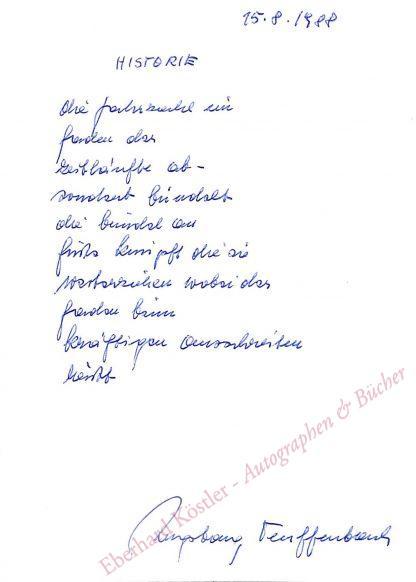 15.8.1988
HISTORIE
die jahrzahl ein
faden der
zeitläufte ab-
sondert bündelt
die bündel an
füße knüpft die sie
weiterziehen wobei der
faden beim
kräftigen ausschreiten
reißt
Ingeborg Teuffenbach
Eberhard Köstler - Autographen & Bücher